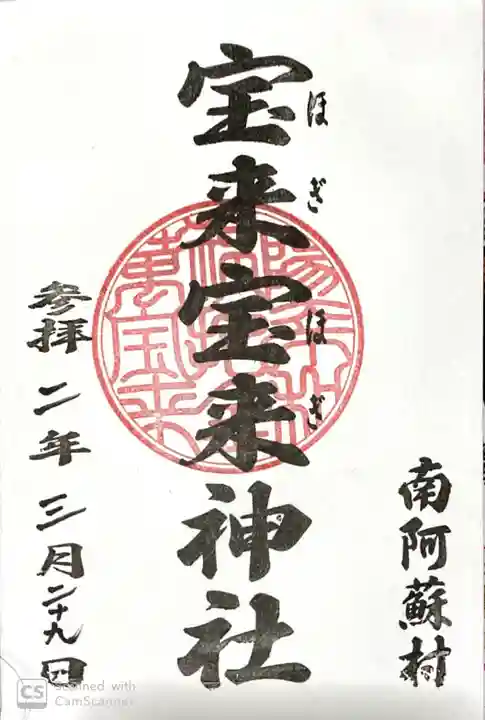 南阿蘇村
ほぎ ほぎ
宝来宝来神社
参拝 二年 三月二十九日
CS Scanned with
CamScanner